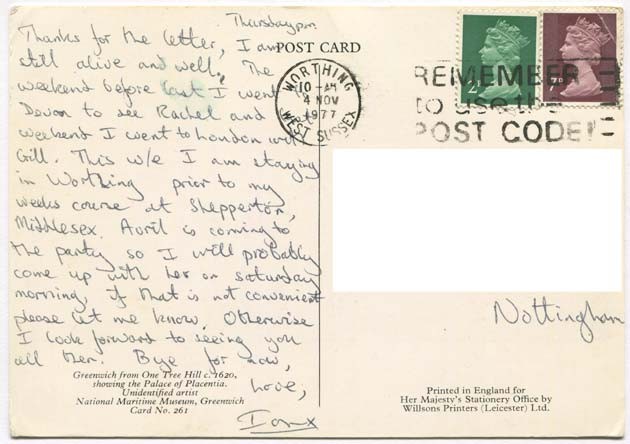 Thursday pm
Thanks for the letter, I am
still alive and well. The
weekend before last I went to
Devon to see Rachel and
weekend I went to London with
Gill. This w/e I am staying
in Worthing prior to my
weeks course at Shepperton,
Middlesex. Avril is coming to
the party so I will probably
come up with her on saturday
morning, if that is not convenient
please let me know. Otherwise
I look forward to seeing you
all then. Bye for now,
Love,
x
Greenwich from One Tree Hill c.1620,
showing the Palace of Placentia.
Unidentified artist
National Maritime Museum, Greenwich
Card No. 261
POST CARD
WORTHING
10-AM
4 NOV
1977
WEST SUSSEX
REMEMBER
to use the
POST CODE!
2
7P
Nottingham
Printed in England for
Her Majesty's Stationery Office by
Willsons Printers (Leicester) Ltd.